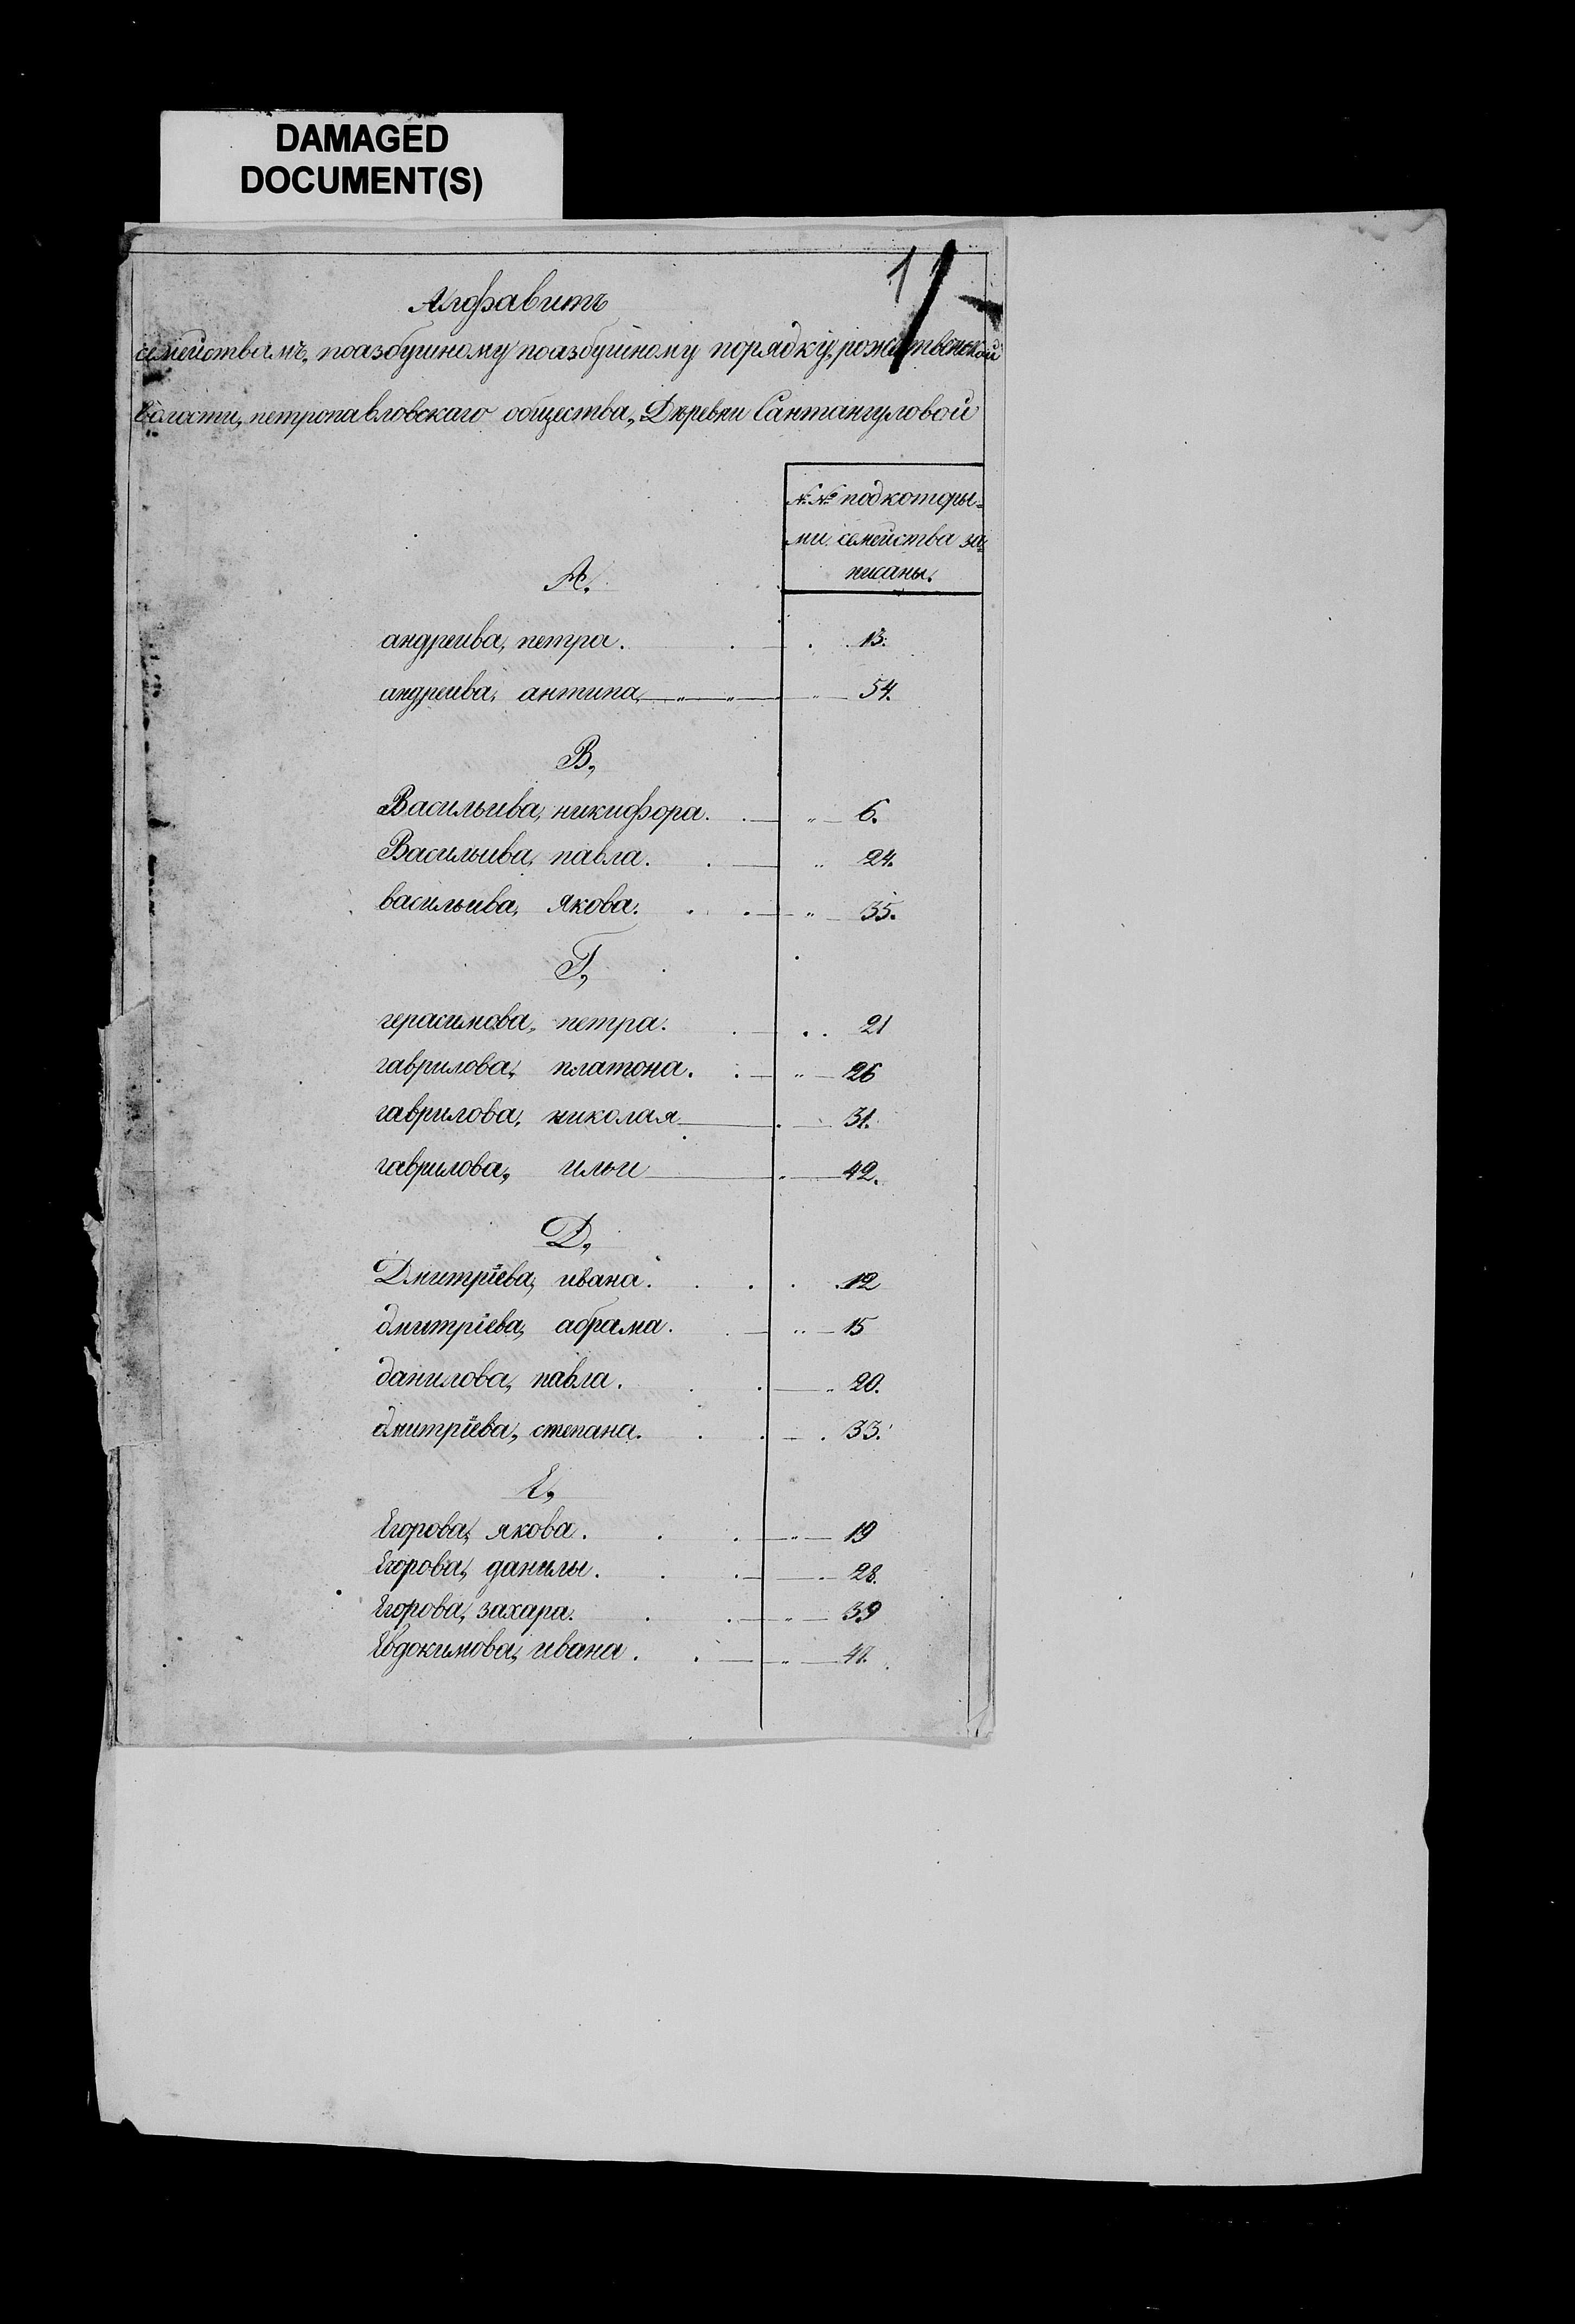 DAMAGED
DOCUMENT(S)
1
Алфавитъ
семействамъ, поазбучному поазбучному порядку, рожественской
волости, петропавловскаго общества, Деревни Сантангуловой
№№ подкоторы=
ми семейства за=
писаны.
А.
андреева, петра. 13.
андреева, антипа 54.
В,
Васильева, никифора. 6.
Васильева, павла. 24.
васильева, якова. 35.
Г,
герасимова, петра. 21
гаврилова, платона. 26
гаврилова, николая 31.
гаврилова, ильи 42.
Д,
Дмитріева, ивана. 12
дмитріева, абрама. 15
данилова, павла. 20.
дмитріева, степана. 33.
Е,
Егорова, якова. 19
Егорова, данилы. 28.
Егорова, захара. 39
Евдокимова, ивана.